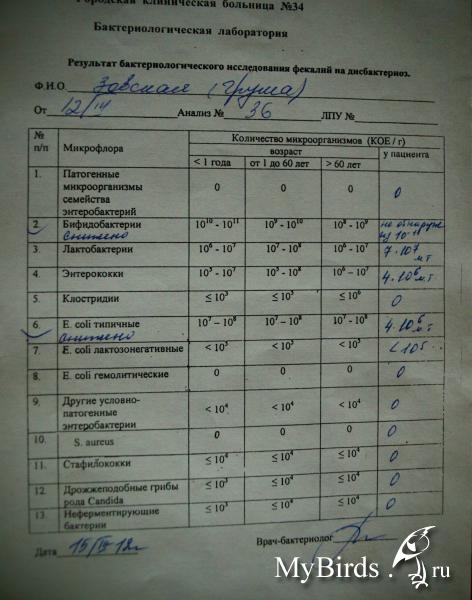 Городская клиническая больница №34
Бактериологическая лаборатория
Результат бактериологического исследования фекалий на дисбактериоз.
Ф.И.О. (Груша)
От 12/IV Анализ № 36 ЛПУ №
№ п/п Микрофлора Количество микроорганизмов (КОЕ / г)
возраст у пациента
< 1 года от 1 до 60 лет > 60 лет
1. Патогенные микроорганизмы семейства энтеробактерий 0 0 0 0
2. Бифидобактерии снижено 10¹⁰ - 10¹¹ 10⁹ - 10¹⁰ 10⁸ - 10⁹ не обнаруж
3. Лактобактерии 10⁶ - 10⁷ 10⁷ - 10⁸ 10⁶ - 10⁷ 7·10⁷ м.т
4. Энтерококки 10⁵ - 10⁷ 10⁵ - 10⁸ 10⁶ – 10⁷ 4·10⁶ м.т
5. Клостридии ≤ 10³ ≤ 10⁵ ≤ 10⁶ 0
6. E. coli типичные снижено 10⁷ – 10⁸ 10⁷ – 10⁸ 10⁷ - 10⁸ 4·10⁶ м.т
7. E. coli лактозонегативные < 10⁵ < 10⁵ < 10⁵ < 10⁵
8. E. coli гемолитические 0 0 0 0
9. Другие условно-патогенные энтеробактерии < 10⁴ < 10⁴ < 10⁴ 0
10. S. aureus 0 0 0 0
11. Стафилококки ≤ 10⁴ ≤ 10⁴ ≤ 10⁴ 0
12. Дрожжеподобные грибы рода Candida ≤ 10³ ≤ 10⁴ ≤ 10⁴ 0
13. Неферментирующие бактерии ≤ 10³ ≤ 10⁴ ≤ 10⁴ 0
Дата 15/IV 12г. Врач-бактериолог
MyBirds.ru